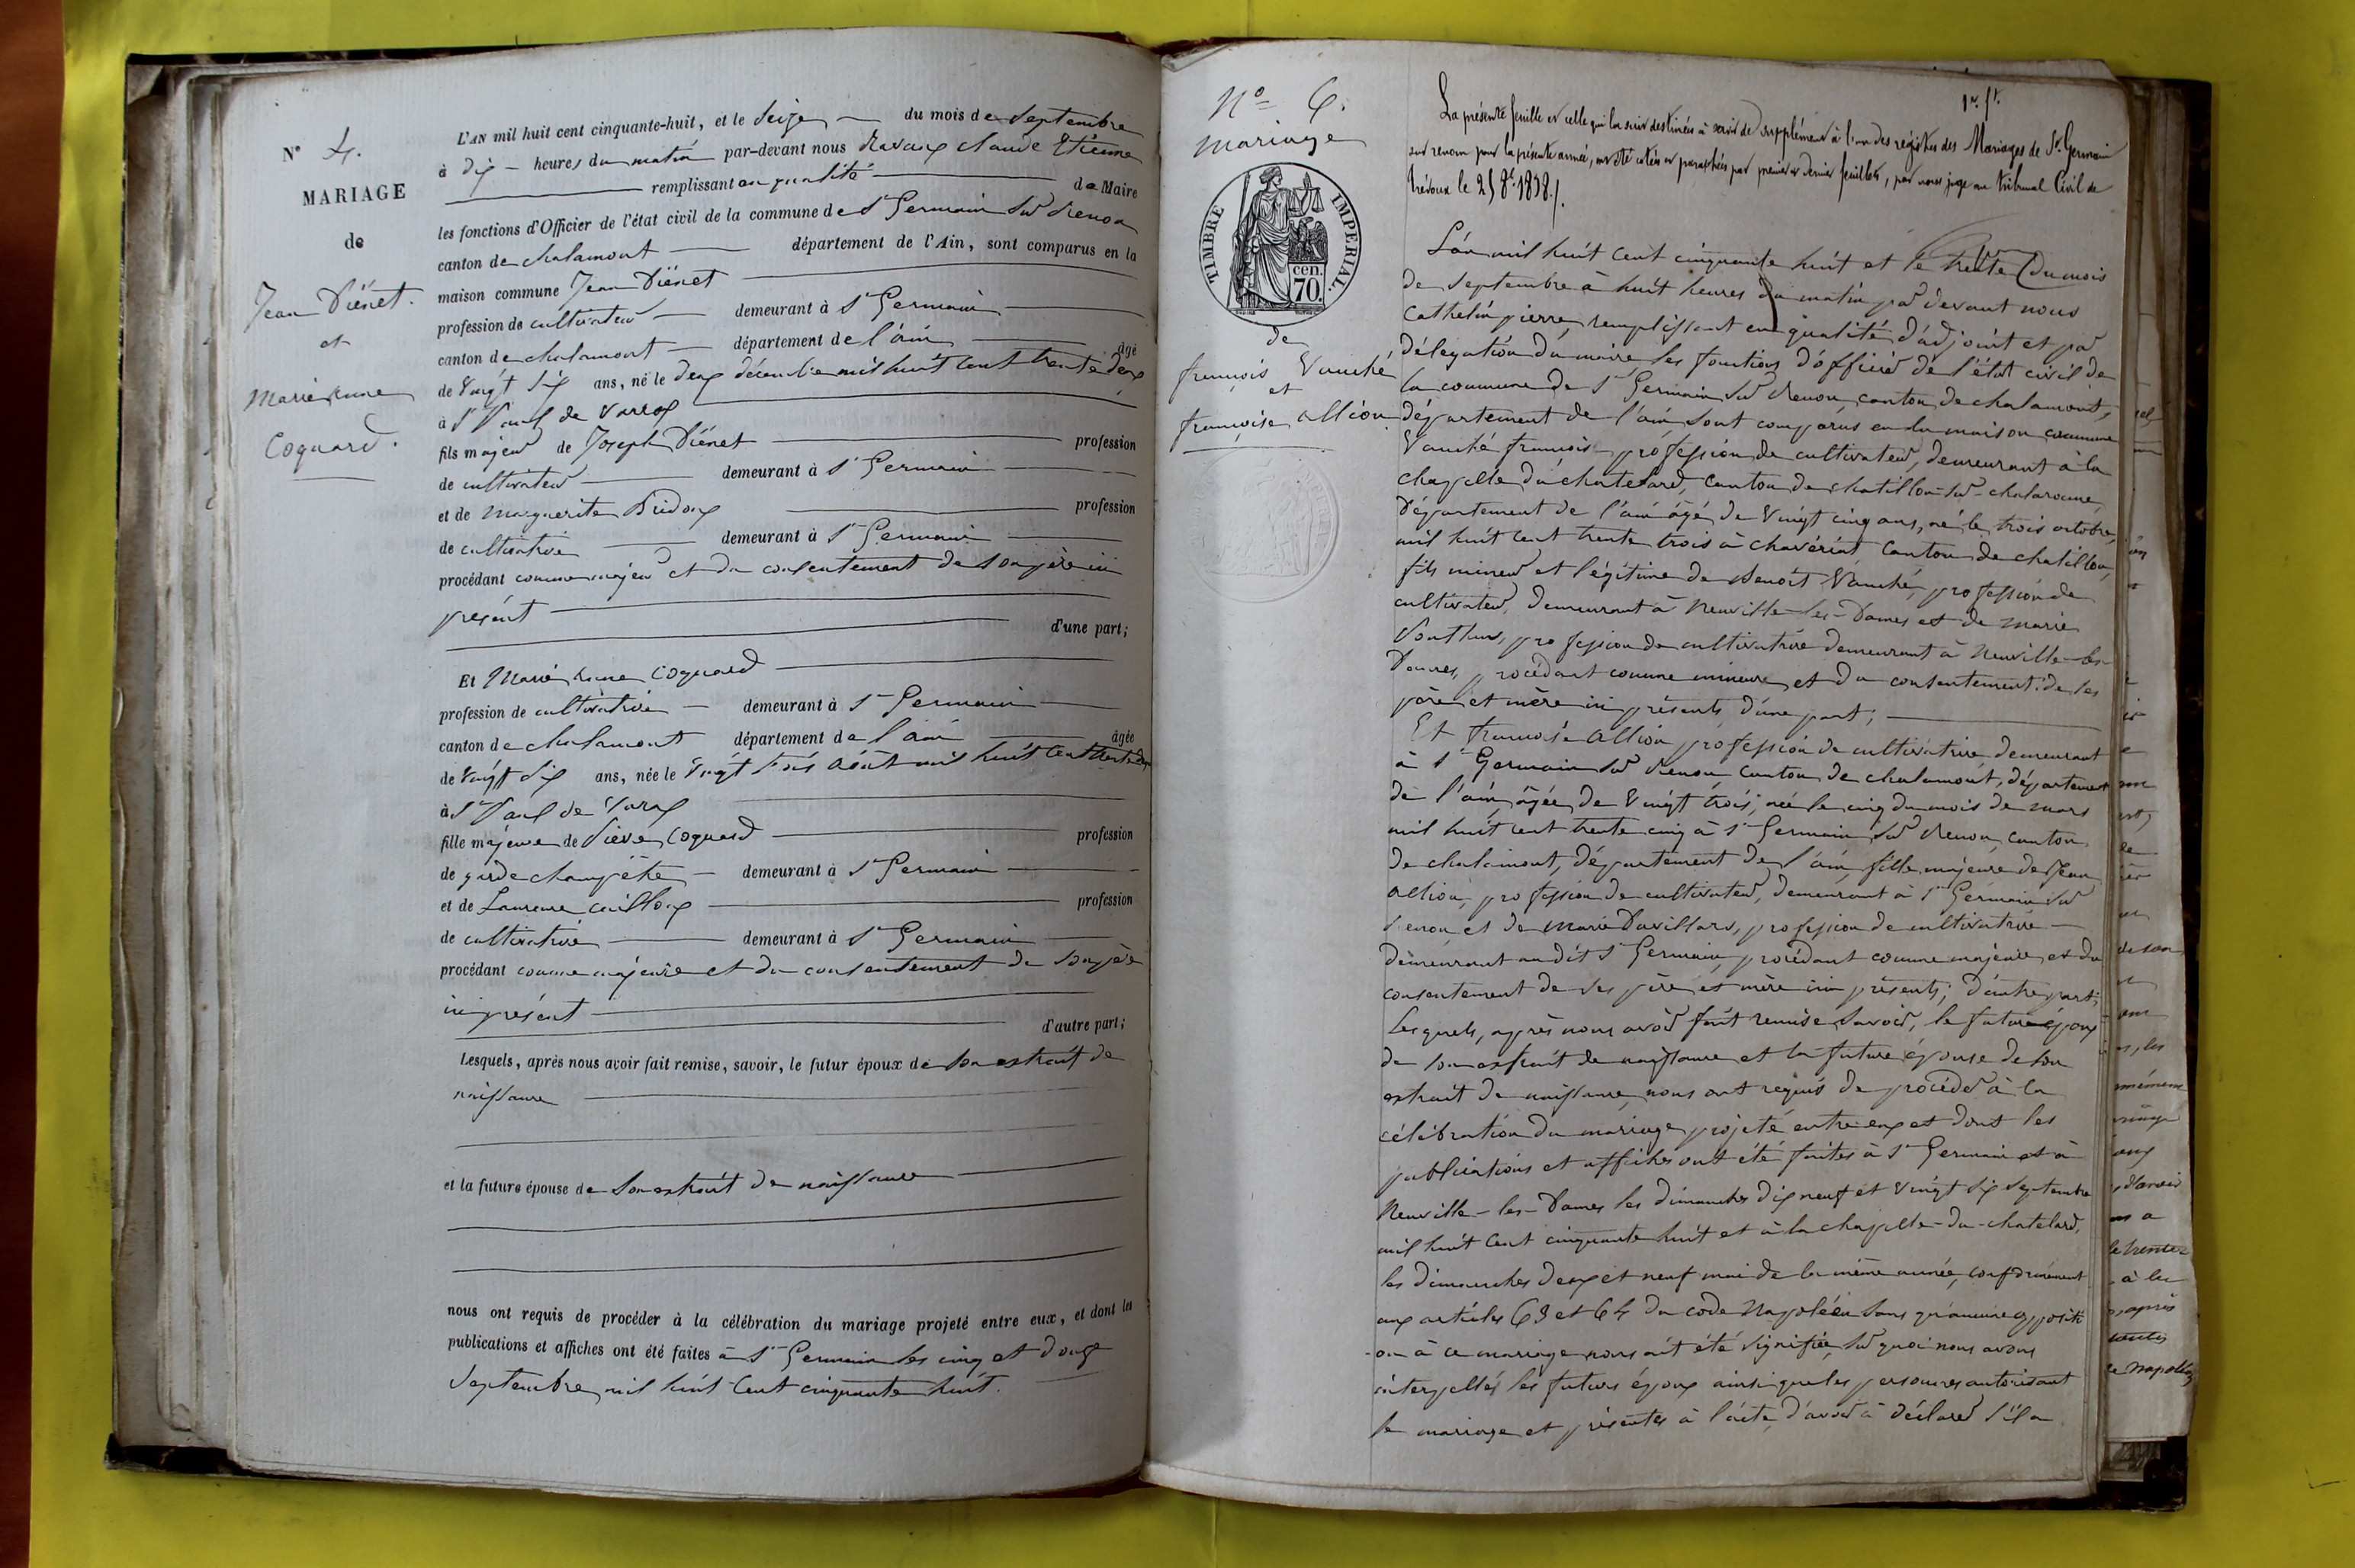 N° 4.
MARIAGE
de
Jean Viénet.
et
Marie Anne
Coquard.
L'AN mil huit cent cinquante-huit, et le Seize du mois de Septembre
à dix heures du matin par-devant nous Ravaux Claude Etienne
remplissant en qualité de Maire
les fonctions d'Officier de l'état civil de la commune de St Germain Sur Renon
canton de chalamont département de l'Ain, sont comparus en la
maison commune Jean Viénet
profession de cultivateur demeurant à St Germain
canton de chalamont département de l'ain âgé
de Vingt Six ans, né le deux décembre mil huit cent trente deux
à St Paul de Varax
fils majeur de Joseph Viénet profession
de cultivateur demeurant à St Germain
et de Marguerite profession
de cultivatrice demeurant à St Germain
procédant comme majeur et du consentement de Son père ici
présent
d'une part;
Et Marie Anne Coquard
profession de cultivatrice demeurant à St Germain
canton de chalamont département de l'ain âgée
de Vingt Six ans, née le Vingt trois Août mil huit cent trente deux
à St Paul de Varax
fille majeure de Coquard profession
de garde champêtre demeurant à St Germain
et de Laurence Cailloux profession
de cultivatrice demeurant à St Germain
procédant comme majeure et du consentement de Son père
ici présent
d'autre part;
Lesquels, après nous avoir fait remise, savoir, le futur époux de Son extrait de
naissance
et la future épouse de Son extrait de naissance
nous ont requis de procéder à la célébration du mariage projeté entre eux, et dont les
publications et affiches ont été faites à St Germain les cinq et douze
Septembre mil huit Cent cinquante huit.
N° 6.
Mariage
TIMBRE IMPERIAL.
70. cen.
de
françois Vauché
et
françoise Allion
1er ft.
La présente feuille et celle qui la suit destinées à servir de supplément à l'un des régistres des Mariages de St Germain
sur renom pour la présente année, ont été cotées et paraphées par premier et dernier feuillets, par nous juge au tribunal Civil de
Trévoux le 25 8bre 1858.
L'an mil huit Cent cinquante huit et le trente du mois
de Septembre à huit heures du matin par devant nous
Cathelin pierre, remplissant en qualité d'adjoint et par
délégation du maire les fonctions d'officier de l'état civil de
la commune de St Germain Sur Renon, canton de chalamont,
département de l'ain, Sont comparus en la maison commune
Vauché françois profession de cultivateur, demeurant à la
chapelle du chatelard, Canton de chatillon-Sur-chalaronne,
Département de l'ain âgé de Vingt cinq ans, né le trois octobre
mil huit cent trente trois à chavériat Canton de chatillon,
fils mineur et légitime de Benoît Vauché, profession de
cultivateur, demeurant à Neuville-les-Dames et de marie
profession de cultivatrice demeurant à Neuville-les-
Dames, procédant comme mineur et du consentement de ses
père et mère ici présents, d'une part;
Et françoise Allion profession de cultivatrice demeurant
à St Germain Sur Renon Canton de chalamont, département
de l'ain, âgée de Vingt trois, née le cinq du mois de mars
mil huit cent trente cinq à St Germain Sur Renon, canton
de chalamont, département de l'ain, fille majeure de Jean
Allion, profession de cultivateur, demeurant à St Germain Sur
Renon et de Marie Duvillard, profession de cultivatrice
demeurant au dit St Germain, procédant comme majeure, et du
consentement de Ses père et mère ici présents; d'autre part;
Lesquels, après nous avoir fait remise Savoir, le futur époux
de Son extrait de naissance et la future épouse de Son
extrait de naissance, nous ont requis de procéder à la
célébration du mariage projeté entre eux et dont les
publications et affiches ont été faites à St Germain et à
Neuville-les-Dames les dimanches dix neuf et Vingt Six Septembre
mil huit Cent cinquante huit et à la chapelle-du-chatelard,
les dimanches deux et neuf mai de la même année, conformément
aux articles 63 et 64 du code Napoléon Sans qu'aucune oppositi
-on à ce mariage nous ait été Signifiée, Sur quoi nous avons
interpellés les futurs époux ainsi que les personnes autorisant
le mariage et présentes à l'acte, d'avoir à déclarer S'il a